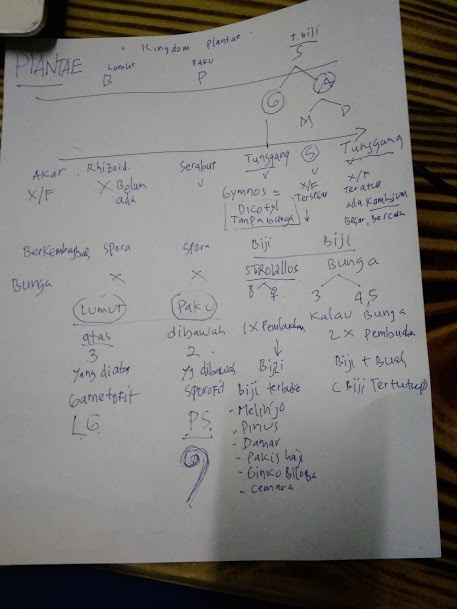 PLANTAE
Kingdom Plantae
Lumut
B
Paku
P
T. biji
S
G
A
M D
Akar Rhizoid Serabut Tunggang S Tunggang
X/F X Belum ada
Gymnos =
Dicotyl
Tanpa bunga
X/F
Tersebar
X/F
Teratur
ada Kambium
Besar, Bercabang
Berkembangbiak Spora Spora Biji Biji
Bunga X X STROBILUS Bunga
♂ ♀ 3 4,5
Lumut Paku 1 X Pembuahan Kalau Bunga
atas dibawah 2 X Pembuahan
3 2
yang diatas yg dibawah Biji Biji + Buah
Gametofit Sporofit Biji terbuka (Biji Tertutup)
LG PS
- Melinjo
- Pinus
- Damar
- Pakis haji
- Ginko Biloba
- Cemara